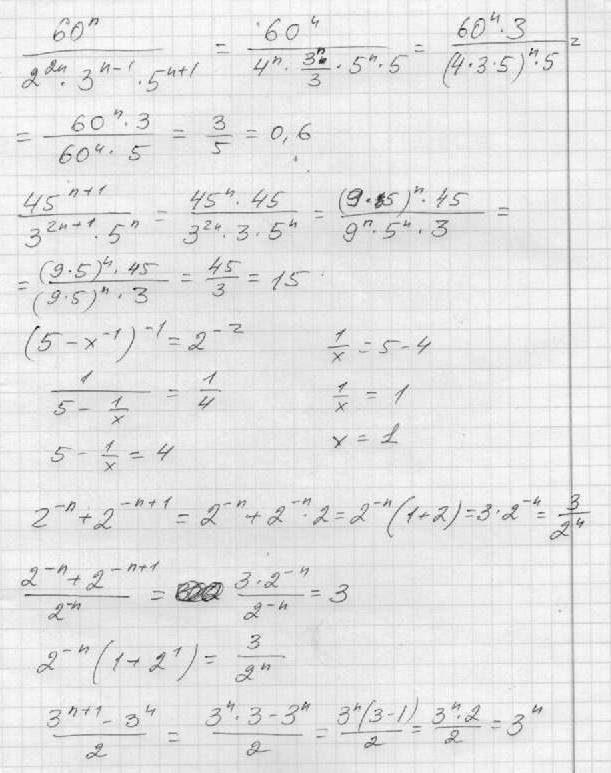 60ⁿ / (2²ⁿ · 3ⁿ⁻¹ · 5ⁿ⁺¹) = 60ⁿ / (4ⁿ · 3ⁿ/3 · 5ⁿ · 5) = 60ⁿ · 3 / ((4 · 3 · 5)ⁿ · 5) =
= 60ⁿ · 3 / (60ⁿ · 5) = 3/5 = 0,6
45ⁿ⁺¹ / (3²ⁿ⁺¹ · 5ⁿ) = 45ⁿ · 45 / (3²ⁿ · 3 · 5ⁿ) = (9 · 5)ⁿ · 45 / (9ⁿ · 5ⁿ · 3) =
= (9 · 5)ⁿ · 45 / ((9 · 5)ⁿ · 3) = 45/3 = 15
(5 - x⁻¹)⁻¹ = 2⁻²
1 / (5 - 1/x) = 1/4
5 - 1/x = 4
1/x = 5 - 4
1/x = 1
x = 1
2⁻ⁿ + 2⁻ⁿ⁺¹ = 2⁻ⁿ + 2⁻ⁿ · 2 = 2⁻ⁿ (1+2) = 3 · 2⁻ⁿ = 3/2ⁿ
(2⁻ⁿ + 2⁻ⁿ⁺¹) / 2⁻ⁿ = 3 · 2⁻ⁿ / 2⁻ⁿ = 3
2⁻ⁿ (1 + 2¹) = 3/2ⁿ
(3ⁿ⁺¹ - 3ⁿ) / 2 = (3ⁿ · 3 - 3ⁿ) / 2 = 3ⁿ(3-1) / 2 = 3ⁿ · 2 / 2 = 3ⁿ